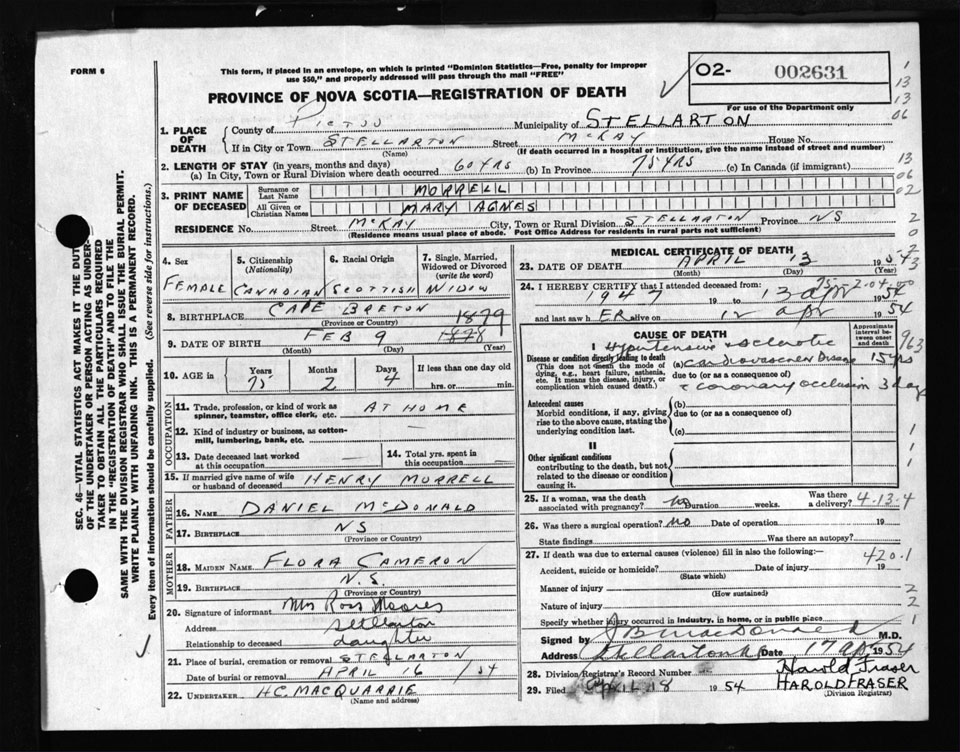 FORM 6
This form, if placed in an envelope, on which is printed "Dominion Statistics—Free, penalty for improper
use $50," and properly addressed will pass through the mail "FREE"
02- 002631
For use of the Department only
PROVINCE OF NOVA SCOTIA—REGISTRATION OF DEATH
1
13
13
06
13
06
02
2
0
2
SEC. 46—VITAL STATISTICS ACT MAKES IT THE DUTY
OF THE UNDERTAKER OR PERSON ACTING AS UNDER-
TAKER TO OBTAIN ALL THE PARTICULARS REQUIRED
IN THE "REGISTRATION OF DEATH" AND TO FILE THE
SAME WITH THE DIVISION REGISTRAR WHO SHALL ISSUE THE BURIAL PERMIT.
WRITE PLAINLY WITH UNFADING INK. THIS IS A PERMANENT RECORD.
Every item of information should be carefully supplied. (See reverse side for instructions.)
1. PLACE OF DEATH
County of PICTOU Municipality of STELLARTON
If in City or Town STELLARTON Street MCKAY House No.
(Name) (If death occurred in a hospital or institution, give the name instead of street and number)
2. LENGTH OF STAY (in years, months and days)
(a) In City, Town or Rural Division where death occurred 60 YRS (b) In Province 75 YRS (c) In Canada (if immigrant)
3. PRINT NAME OF DECEASED
Surname or Last Name MORRELL
All Given or Christian Names MARY AGNES
RESIDENCE No. Street MCKAY City, Town or Rural Division STELLARTON Province NS
(Residence means usual place of abode. Post Office Address for residents in rural parts not sufficient)
4. Sex FEMALE
5. Citizenship (Nationality) CANADIAN
6. Racial Origin SCOTTISH
7. Single, Married, Widowed or Divorced (write the word) WIDOW
8. BIRTHPLACE CAPE BRETON
(Province or Country)
1879
9. DATE OF BIRTH FEB 9 1878
(Month) (Day) (Year)
10. AGE in Years 75 Months 2 Days 4 If less than one day old
hrs. or min.
OCCUPATION
11. Trade, profession, or kind of work as
spinner, teamster, office clerk, etc. AT HOME
12. Kind of industry or business, as cotton-
mill, lumbering, bank, etc. —
13. Date deceased last worked
at this occupation
14. Total yrs. spent in
this occupation —
15. If married give name of wife
or husband of deceased HENRY MORRELL
FATHER
16. NAME DANIEL MCDONALD
17. BIRTHPLACE NS
(Province or Country)
MOTHER
18. MAIDEN NAME FLORA CAMERON
19. BIRTHPLACE N.S.
(Province or Country)
20. Signature of informant Mrs Ross
Address Stellarton
Relationship to deceased daughter
21. Place of burial, cremation or removal STELLARTON
Date of burial or removal APRIL 16 /54
22. UNDERTAKER H.C. MACQUARRIE
(Name and address)
MEDICAL CERTIFICATE OF DEATH
23. DATE OF DEATH APRIL 13 19
(Month) (Day) (Year)
24. I HEREBY CERTIFY that I attended deceased from:
1947 19 to 13 apr 1954
and last saw h ER alive on 12 apr 1954
CAUSE OF DEATH
Approximate interval between onset and death
963
I
Disease or condition directly leading to death
(This does not mean the mode of
dying, e.g., heart failure, asthenia,
etc. It means the disease, injury, or
complication which caused death.)
Hypertensive + sclerotic
(a) cardiovascular Disease 15 yrs
due to (or as a consequence of)
coronary occlusion 3 days
Antecedent causes
Morbid conditions, if any, giving
rise to the above cause, stating the
underlying condition last.
(b)
due to (or as a consequence of)
(c)
1
1
1
II
Other significant conditions
contributing to the death, but not
related to the disease or condition
causing it.
25. If a woman, was the death
associated with pregnancy? no Duration weeks. Was there
a delivery? 4-13-4
26. Was there a surgical operation? no Date of operation 19
State findings Was there an autopsy?
27. If death was due to external causes (violence) fill in also the following:— 420.1
Accident, suicide or homicide? Date of injury 19
(State which)
Manner of injury 2
(How sustained)
Nature of injury 2
Specify whether injury occurred in industry, in home, or in public place 1
Signed by J B MacDonald M.D.
Address Stellarton Date 17 apr 1954
28. Division Registrar's Record Number
Harold Fraser
29. Filed April 18 1954 HAROLD FRASER
(Division Registrar)